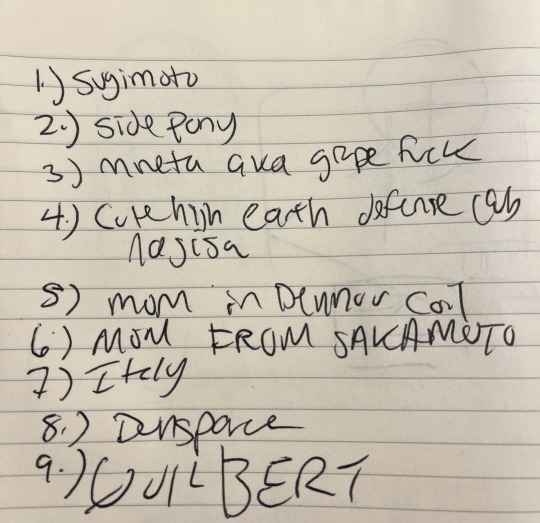 1.) Sugimoto
2.) side pony
3) mneta aka grape fuck
4.) Cute high earth defense club
nagisa
5) mom in Dennou Coil
6.) MOM FROM SAKAMOTO
7) Italy
8.)
9.) GUILBERT